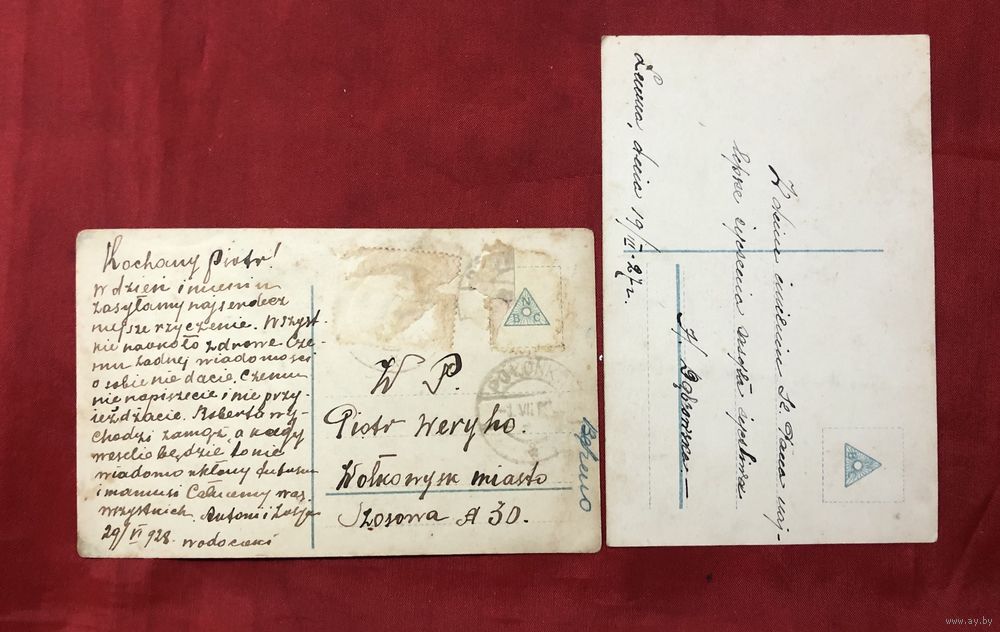 Kochany Piotr!
W dzień imienin
zasyłamy najserdecz
niejsze rzyczenie. Wszyst-
kie naokoło zdrowe Cze-
mu żadnej wiadomości
o sobie nie dacie. Czemu
nie napiszecie i nie przy-
ieżdżacie. Roberta wy-
chodzi zamąż, a kiedy
wesele będzie to nie
wiadomo ukłony
i mamusi Całujemy was
wszystkich. Antoni i Zosja
29/VI 928.
W P.
Piotr Weryho.
Wołkowysk miasto
Szosowa № 30.
POŁONK
VII
N
B C
dnia 19/III-27r.
Z dniem imienin St. Pana naj-
lepsze życzenia
N
B C
www.ay.by